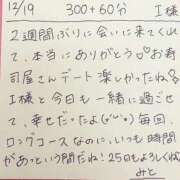 12/19　300+60分　I様
2週間ぶりに会いに来てくれ
て、本当にありがとう♡お寿
司屋さんデート楽しかったね
I様と今日も一緒に過ごせ
て、幸せだったよ(〃ω〃)毎回、
ロングコースなのに、いつも時間
があっという間だね!25日もよろしくね
みと